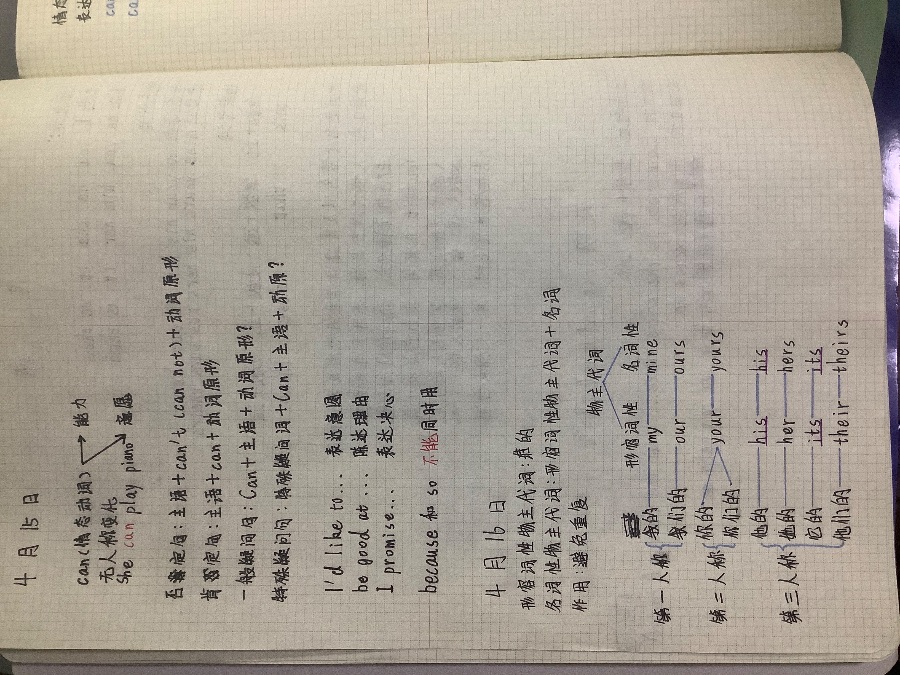 情态
表达
ca
ca
4月15日
can(情态动词) 能力
无人称变化 意愿
She can play piano
否定句:主语+can't(can not)+动词原形
肯定句:主语+can+动词原形
一般疑问句:Can+主语+动词原形?
特殊疑问句:特殊疑问词+Can+主语+动原?
I'd like to... 表达意愿
be good at... 陈述理由
I promise... 表达决心
because 和 so 不能同时用
4月16日
形容词性物主代词:谁的
名词性物主代词:形容词性物主代词+名词
作用:避免重复
物主代词
形容词性 名词性
第一人称 我的 my mine
我们的 our ours
第二人称 你的 your yours
你们的
第三人称 他的 his his
她的 her hers
它的 its its
他们的 their theirs